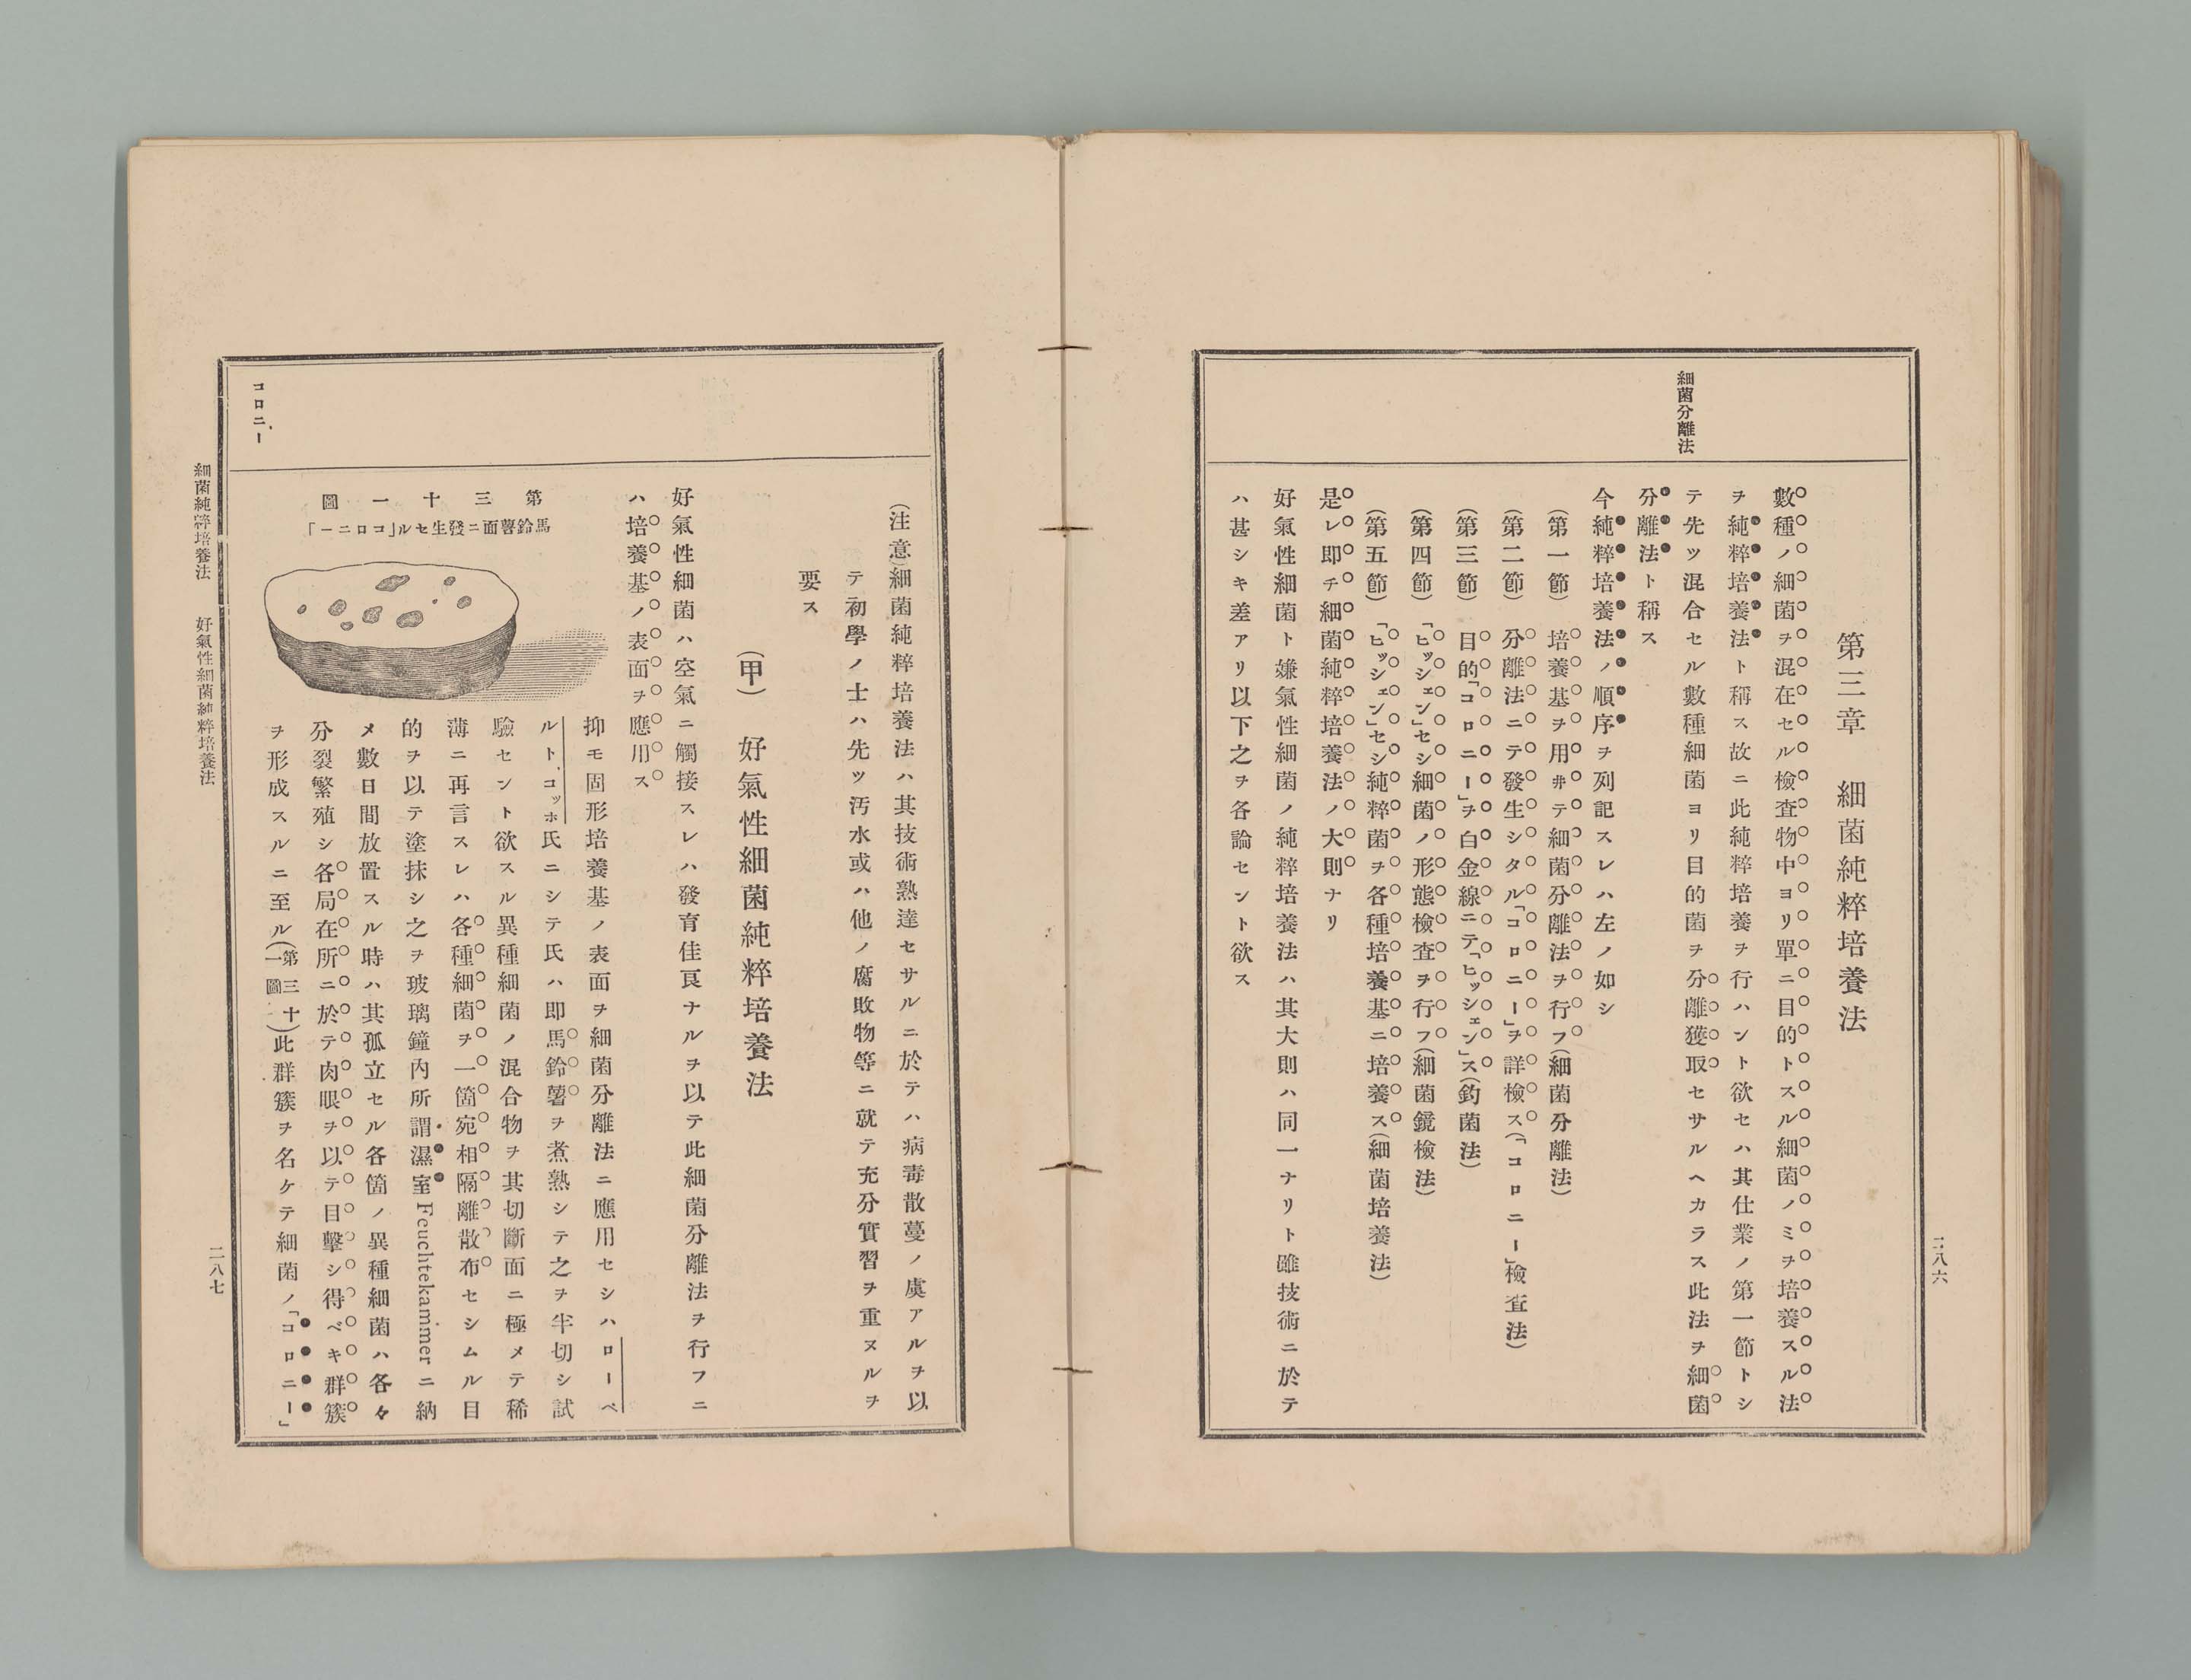 細菌分離法
第三章　細菌純粹培養法
數種ノ細菌ヲ混在セル檢查物中ヨリ單ニ目的トスル細菌ノミヲ培養スル法
ヲ純粹培養法ト稱ス故ニ此純粹培養ヲ行ハント欲セハ其仕業ノ第一節トシ
テ先ツ混合セル數種細菌ヨリ目的菌ヲ分離獲取セサルヘカラス此法ヲ細菌
分離法ト稱ス
今純粹培養法ノ順序ヲ列記スレハ左ノ如シ
(第一節)　培養基ヲ用ヰテ細菌分離法ヲ行フ(細菌分離法)
(第二節)　分離法ニテ發生シタル「コロニー」ヲ詳檢ス(「コロニー」檢查法)
(第三節)　目的「コロニー」ヲ白金線ニテ「ヒッシェン」ス(釣菌法)
(第四節)　「ヒッシェン」セシ細菌ノ形態檢查ヲ行フ(細菌鏡檢法)
(第五節)　「ヒッシェン」セシ純粹菌ヲ各種培養基ニ培養ス(細菌培養法)
是レ即チ細菌純粹培養法ノ大則ナリ
好氣性細菌ト嫌氣性細菌ノ純粹培養法ハ其大則ハ同一ナリト雖技術ニ於テ
ハ甚シキ差アリ以下之ヲ各論セント欲ス
二八六
(注意)細菌純粹培養法ハ其技術熟達セサルニ於テハ病毒散蔓ノ虞アルヲ以
テ初學ノ士ハ先ツ汚水或ハ他ノ腐敗物等ニ就テ充分實習ヲ重ヌルヲ
要ス
(甲)　好氣性細菌純粹培養法
好氣性細菌ハ空氣ニ觸接スレハ發育佳良ナルヲ以テ此細菌分離法ヲ行フニ
ハ培養基ノ表面ヲ應用ス
第三十一圖
馬鈴薯面ニ發生セル「コロニー」
抑モ固形培養基ノ表面ヲ細菌分離法ニ應用セシハローベ
ルト、コッホ氏ニシテ氏ハ即馬鈴薯ヲ煮熟シテ之ヲ半切シ試
驗セント欲スル異種細菌ノ混合物ヲ其切斷面ニ極メテ稀
薄ニ再言スレハ各種細菌ヲ一箇宛相隔離散布セシムル目
的ヲ以テ塗抹シ之ヲ玻璃鐘內所謂濕室Feuchtekammer ニ納
メ數日間放置スル時ハ其孤立セル各箇ノ異種細菌ハ各々
分裂繁殖シ各局在所ニ於テ肉眼ヲ以テ目擊シ得ベキ群簇
ヲ形成スルニ至ル(第三十一圖)此群簇ヲ名ケテ細菌ノ「コロニー」
コロニー
細菌純粹培養法　好氣性細菌純粹培養法
二八七